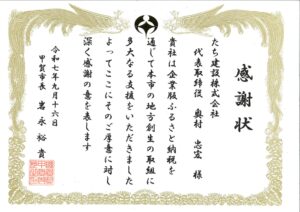 感謝状
たち建設株式会社
代表取締役 奥村 忠宏 様
貴社は企業版ふるさと納税を
通じて本市の地方創生の取組に
多大なる支援をいただきました
よってここにそのご厚意に対し
深く感謝の意を表します
令和七年九月十六日
甲賀市長 岩永裕貴